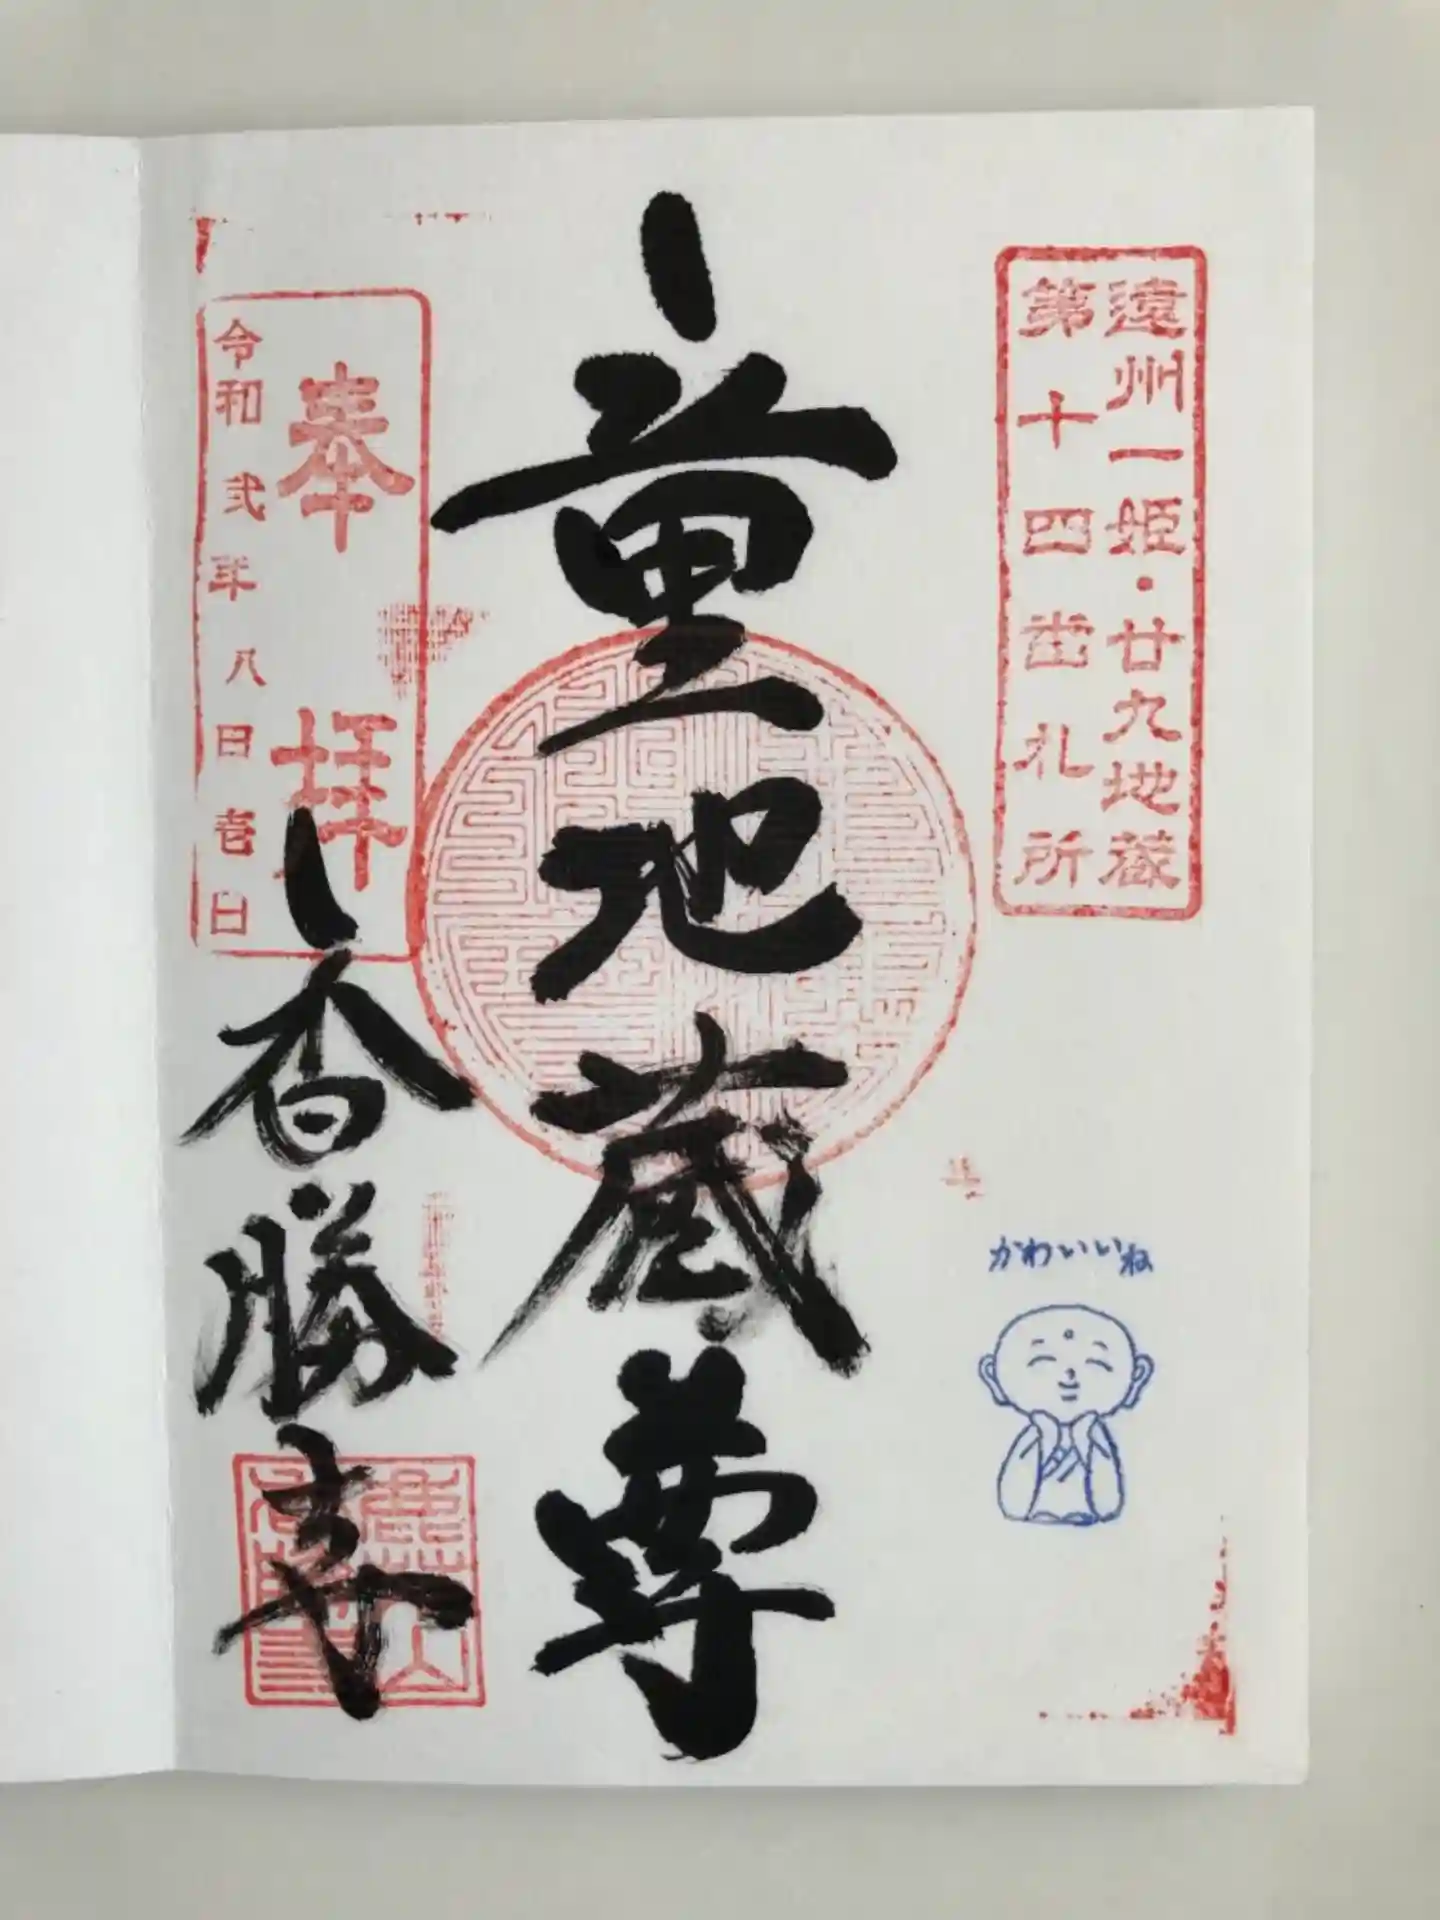 遠州一姫・廿九地蔵
第十四番札所
かわいいね
童地蔵尊
奉拝
令和弐年八月壱日
香勝寺